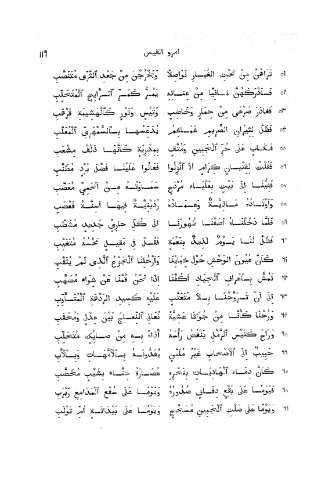 امرؤ القيس
٥١ تراهن من تحت الغبار نواصلا ويخرجن من جعد الثرى متنصب
٥٢ فأدركهن ثانيا من عنانه يمر كمر الرائح المتحلب
٥٣ فغادر صرعى من حمار وخاضب وتيس وثور كالهشيمة قرهب
٥٤ فظل لثيران الصريم غماغم يدعسها بالسمهري المعلب
٥٥ فكاب على حر الجبين ومتق بمدرية كأنها ذلق مشعب
٥٦ فقلت لفتيان كرام ألا انزلوا فعالوا علينا فضل برد مطنب
٥٧ ففئنا الى بيت بعلياء مردح سماوته من أتحمي معصب
٥٨ وأوتاده ماذية وعماده ردينية فيها أسنة قعضب
٥٩ فلما دخلناه أضفنا ظهورنا الى كل حاري جديد مشطب
٦٠ فظل لنا يوم لذيذ بنعمة فقل في مقيل نحسه متغيب
٦١ كأن عيون الوحش حول خبائنا وأرحلنا الجزع الذي لم يثقب
٦٢ نمش بأعراف الجياد أكفنا اذا نحن قمنا عن شواء مضهب
٦٣ الى أن تروحنا بلا متعتب عليه كسيد الردهة المتأوب
٦٤ ورحنا كأنا من جواثا عشية نعالي النعاج بين عدل ومحقب
٦٥ وراح كتيس الربل ينفض رأسه أذاة به من صائك متحلب
٦٦ حبيب الى الأصحاب غير ملعن يفدونه بالأمهات وبالأب
٦٧ كأن دماء الهاديات بنحره عصارة حناء بشيب مخضب
٦٨ فيوما على بقع دقاق صدوره ويوما على سفع المدامع ربرب
٦٩ ويوما على صلت الجبين مسحج ويوما على بيدانة أم تولب